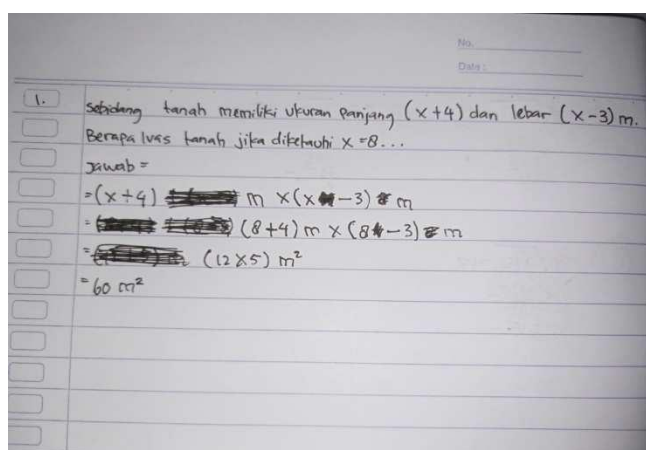 No.
Date:
1. Sebidang tanah memiliki ukuran panjang (x+4) dan lebar (x-3) m.
Berapa luas tanah jika diketahui x=8...
Jawab =
=(x+4) m ×(x-3) m
= (8+4) m × (8-3) m
= (12×5) m²
= 60 m²